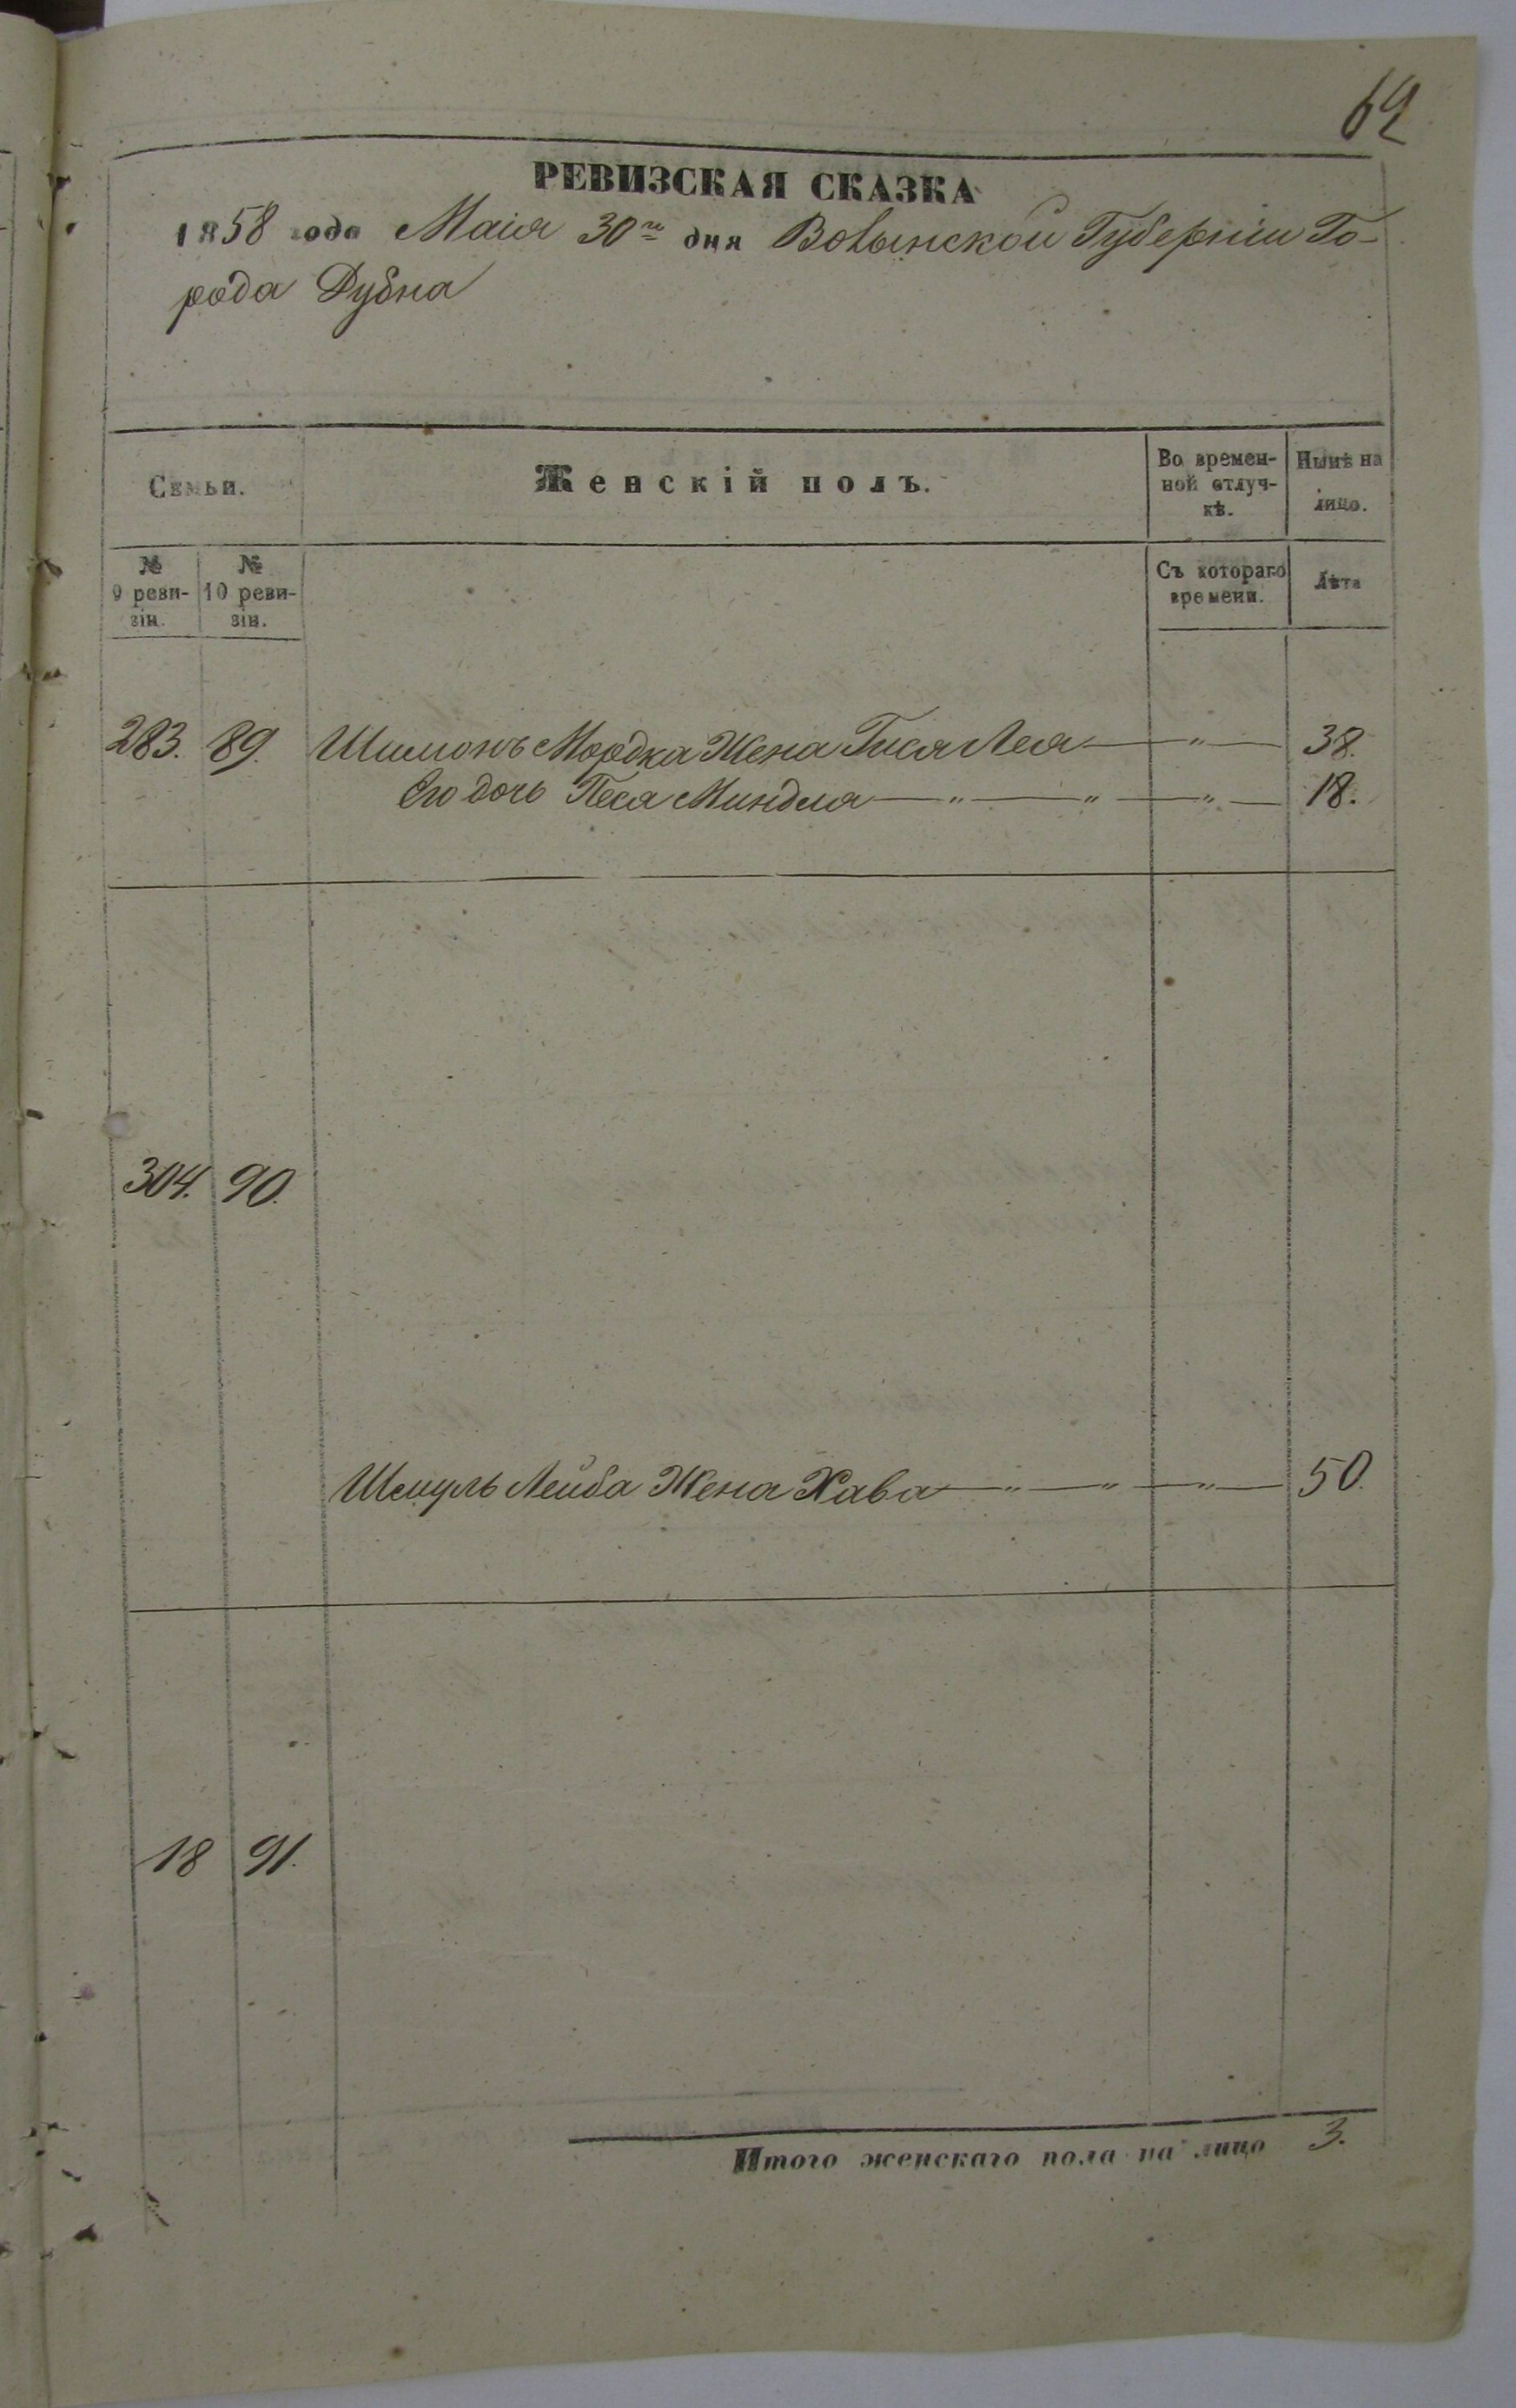 69
РЕВИЗСКАЯ СКАЗКА
1858 года Маія 30го дня Волынской Губерніи Го-
рода Дубна
Семьи.
Женскій полъ.
Во времен-
ной отлуч-
кѣ.
Нынѣ на
лицо.
№
9 реви-
зіи.
№
10 реви-
зіи.
Съ котораго
времени.
Лѣта
283. 89. Шимонъ Мордка Жена Гися Лея — " — 38.
Его дочь Песя Миндля — " — " — " — 18.
304. 90.
Шмуль Лейба Жена Хава — " — " — " — 50.
18 91.
Итого женскаго пола на лицо 3.